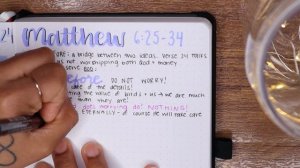 24 Matthew 6:25-34
: a bridge between two ideas. Verse 24 talks
us not worshipping both God + money
serve GOD!
DO NOT WORRY!
care of the details!
ting the value of birds + us → we are much
than they are!
does worrying do? NOTHING!
ETERNALLY - of course He will take care